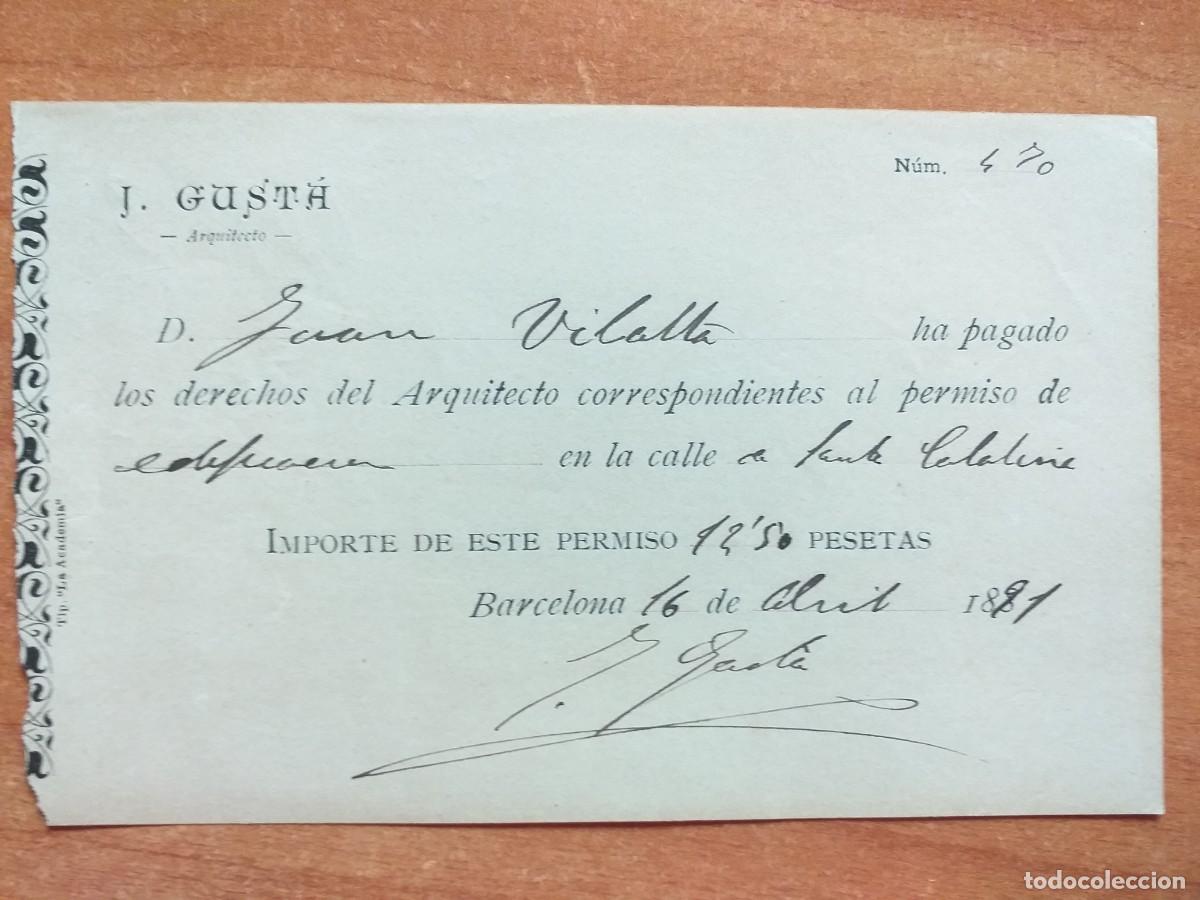 Núm. 470
J. GUSTÁ
— Arquitecto —
D. Juan Vilalta ha pagado
los derechos del Arquitecto correspondientes al permiso de
en la calle de Santa Catalina
IMPORTE DE ESTE PERMISO 12'50 PESETAS
Barcelona 16 de Abril 1891
J. Gustà
Tip. "La Academia"
todocoleccion